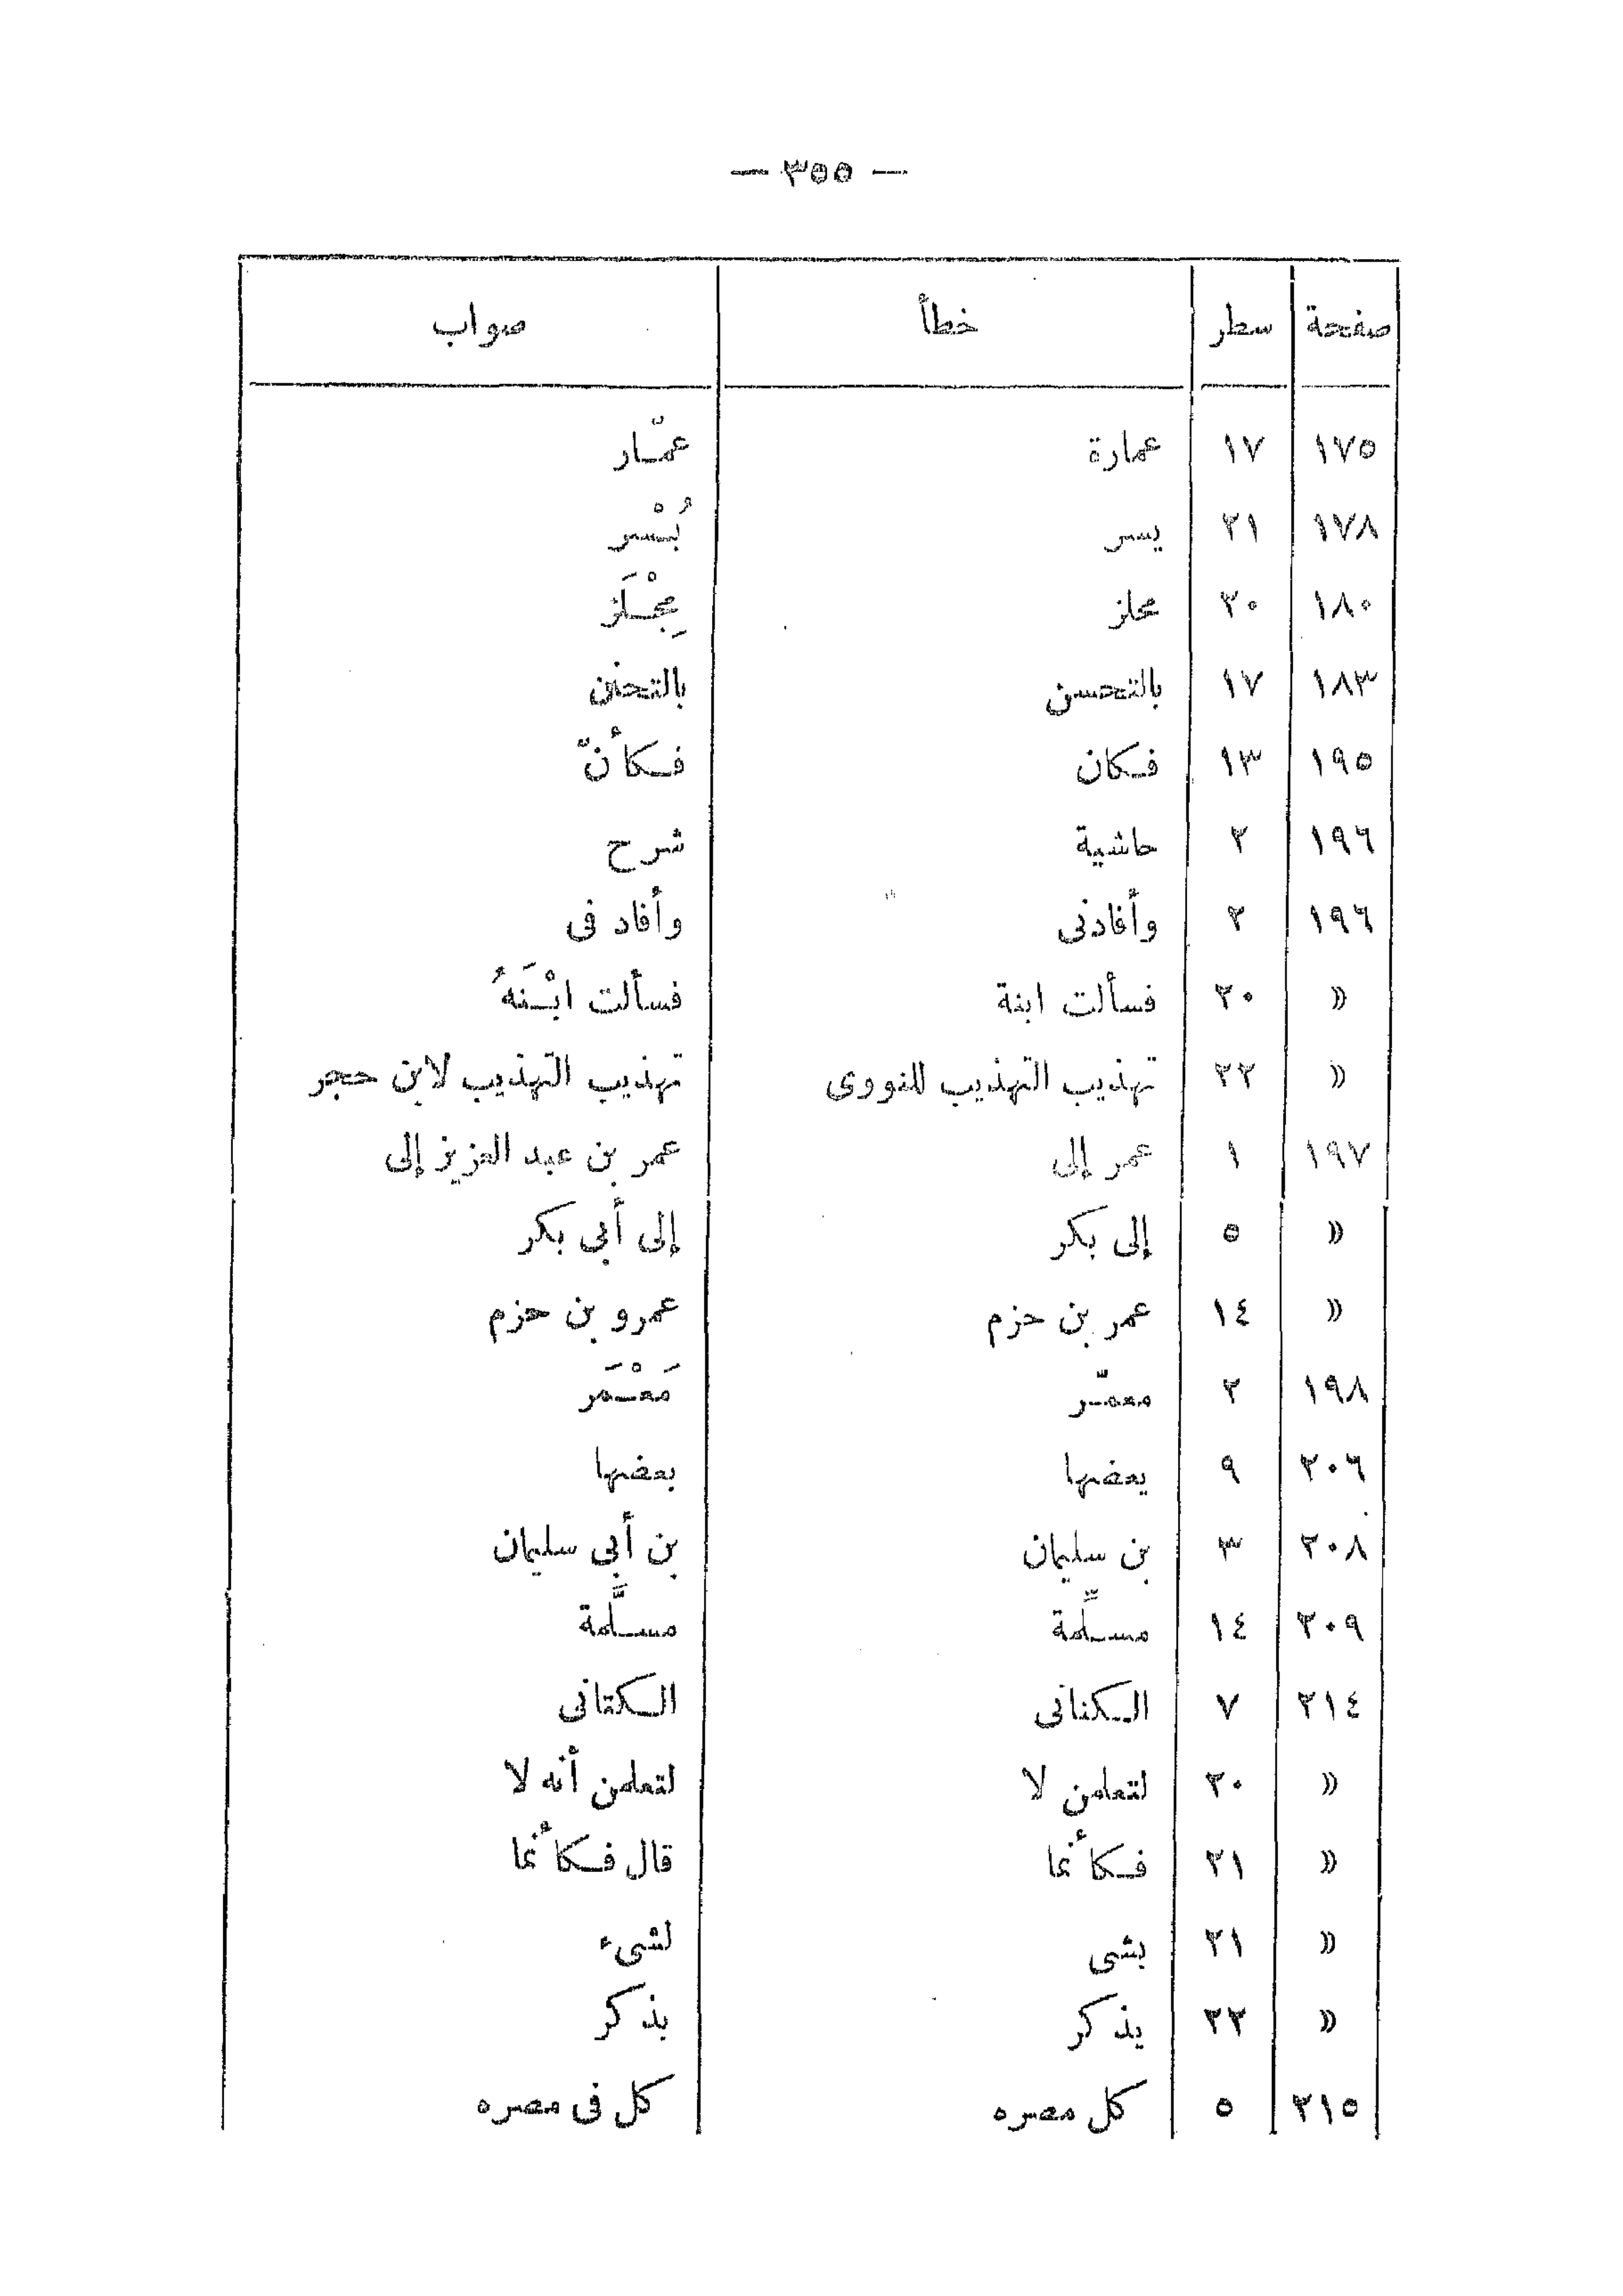 — ٣٥٥ —
صفحة سطر خطأ صواب
١٧٥ ١٧ عمارة عمّار
١٧٨ ٢١ يسر بُسْر
١٨٠ ٢٠ محلز مِجْلَز
١٨٣ ١٧ بالتحسن بالتحنن
١٩٥ ١٣ فكان فكأنّ
١٩٦ ٢ حاشية شرح
١٩٦ ٢ وأفادنى وأفاد فى
» ٢٠ فسألت ابنة فسألت ابْنَهُ
» ٢٢ تهذيب التهذيب للنووى تهذيب التهذيب لابن حجر
١٩٧ ١ عمر إلى عمر بن عبد العزيز إلى
» ٥ إلى بكر إلى أبي بكر
» ١٤ عمر بن حزم عمرو بن حزم
١٩٨ ٢ معمّر مَعْمَر
٢٠٦ ٩ يعضها بعضها
٢٠٨ ٣ بن سليمان بن أبي سليمان
٢٠٩ ١٤ مسلِّمة مسلَّمة
٢١٤ ٧ الكنانى الكتانى
» ٢٠ لتعلمن لا لتعلمن أنه لا
» ٢١ فكأنما قال فكأنما
» ٢١ بشى لشىء
» ٢٢ يذكر بذكر
٢١٥ ٥ كل مصره كل فى مصره